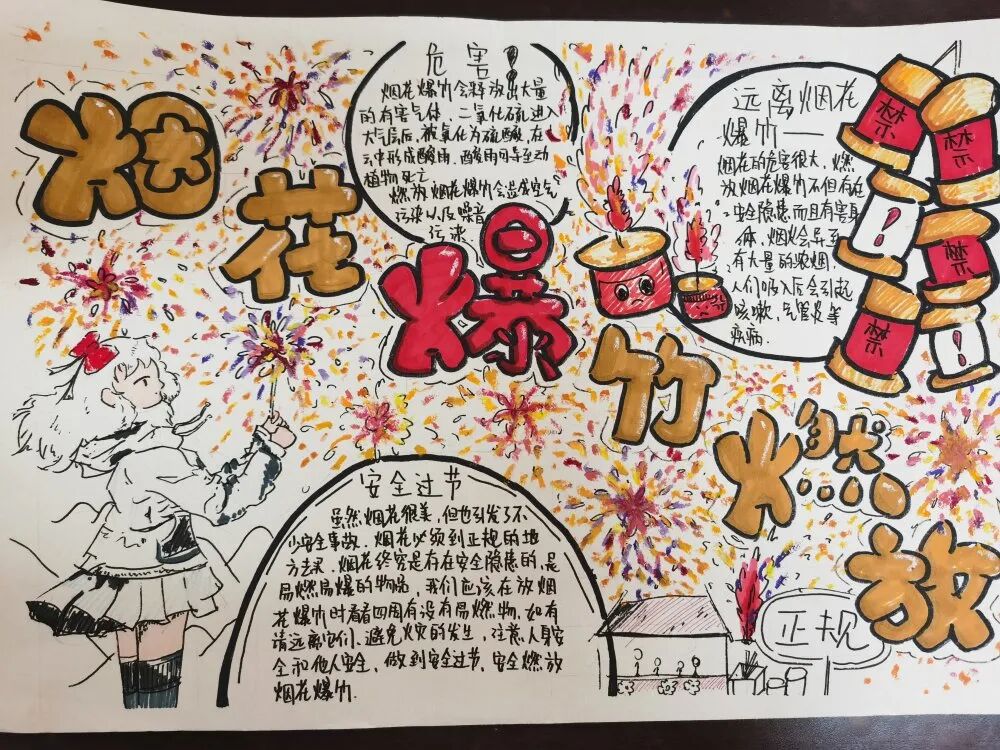 烟花爆竹燃放
危害！
烟花爆竹会释放出大量
的有害气体，二氧化硫进入
大气层后，被氧化为硫酸，在
云中形成酸雨，酸雨可导至动
植物死亡.
燃放烟花爆竹会造成空气
污染以及噪音
污染.
远离烟花
爆竹——
烟花的危害很大，燃
放烟花爆竹不但存在
安全隐患而且有害身
体，烟火会导至
有大量的浓烟，
人们吸入后会引起
咳嗽，气管炎等
疾病.
禁
禁
！
禁
禁
！
安全过节
虽然烟花很美，但也引发了不
少安全事故，烟花必须到正规的地
方去买，烟花终究是存在安全隐患的，是
易燃易爆的物品，我们应该在放烟
花爆竹时看看四周有没有易燃物，如有
请远离它们，避免火灾的发生，注意人身安
全和他人安全，做到安全过节，安全燃放
烟花爆竹.
正规